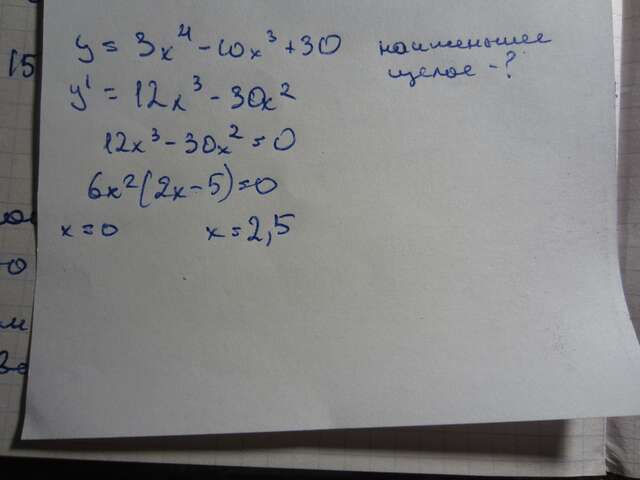 y = 3x⁴ - 10x³ + 30 наименьшее целое - ?
15
y' = 12x³ - 30x²
12x³ - 30x² = 0
6x²(2x - 5) = 0
x = 0 x = 2,5